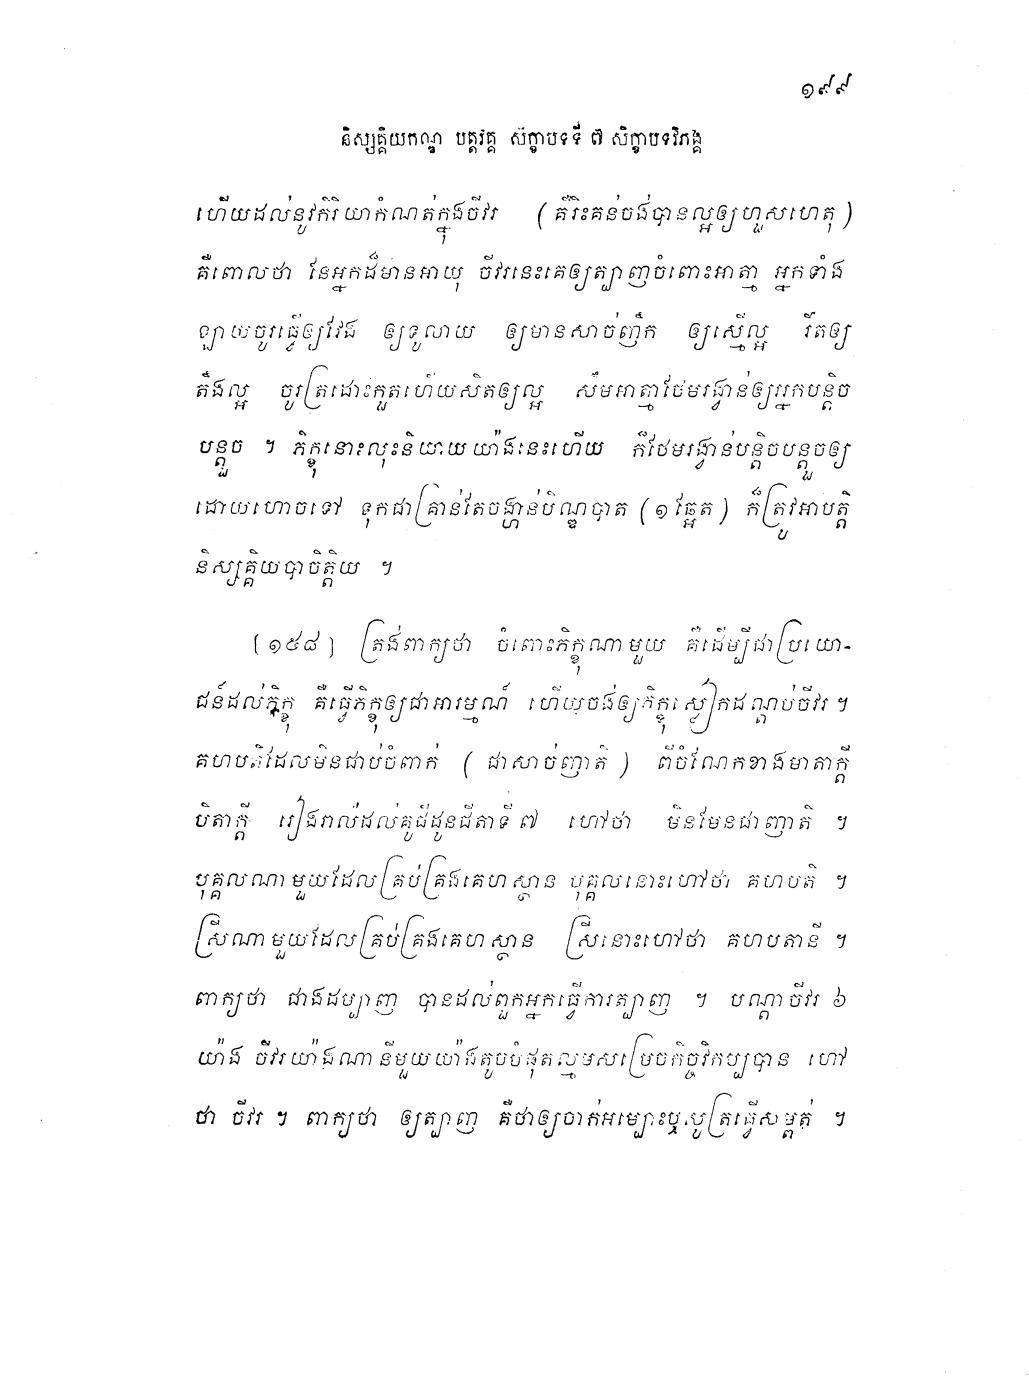 ១៩៩
និស្សគ្គិយកណ្ឌ បត្តវគ្គ សិក្ខាបទទី ៧ សិក្ខាបទវិភង្គ
ហើយដល់នូវកិរិយាកំណត់ក្នុងចីវរ ( គឺរិះគន់ចង់បានល្អឲ្យហួសហេតុ )
គឺពោលថា នែអ្នកដ៏មានអាយុ ចីវរនេះគេឲ្យត្បាញចំពោះអាត្មា អ្នកទាំង
ឡាយចូរធ្វើឲ្យវែង ឲ្យទូលាយ ឲ្យមានសាច់ញឹក ឲ្យស្មើល្អ រឹតឲ្យ
តឹងល្អ ចូរត្រដោះកួតហើយសិតឲ្យល្អ សឹមអាត្មាថែមរង្វាន់ឲ្យអ្នកបន្តិច
បន្តួច ។ ភិក្ខុនោះលុះនិយាយយ៉ាងនេះហើយ ក៏ថែមរង្វាន់បន្តិចបន្តួចឲ្យ
ដោយហោចទៅ ទុកជាគ្រាន់តែចង្ហាន់បិណ្ឌបាត ( ១ ឆ្អែត ) ក៏ត្រូវអាបត្តិ
និស្សគ្គិយបាចិត្តិយ ។
[ ១៥៨ ] ត្រង់ពាក្យថា ចំពោះភិក្ខុណាមួយ គឺដើម្បីជាប្រយោ-
ជន៍ដល់ភិក្ខុ គឺធ្វើភិក្ខុឲ្យជាអារម្មណ៍ ហើយចង់ឲ្យភិក្ខុស្លៀកដណ្តប់ចីវរ ។
គហបតិដែលមិនជាប់ចំពាក់ ( ជាសាច់ញាតិ ) ពីចំណែកខាងមាតាក្តី
បិតាក្តី រៀងរាល់ដល់គូជីដូនជីតាទី ៧ ហៅថា មិនមែនជាញាតិ ។
បុគ្គលណាមួយដែលគ្រប់គ្រងគេហស្ថាន បុគ្គលនោះហៅថា គហបតិ ។
ស្រីណាមួយដែលគ្រប់គ្រងគេហស្ថាន ស្រីនោះហៅថា គហបតានី ។
ពាក្យថា ជាងដម្បាញ បានដល់ពួកអ្នកធ្វើការត្បាញ ។ បណ្តាចីវរ ៦
យ៉ាង ចីវរយ៉ាងណានីមួយយ៉ាងតូចបំផុតល្មមសម្រេចកិច្ចវិកប្បបាន ហៅ
ថា ចីវរ ។ ពាក្យថា ឲ្យត្បាញ គឺថាឲ្យចាក់អម្បោះឬសូត្រធ្វើសម្ពត់ ។